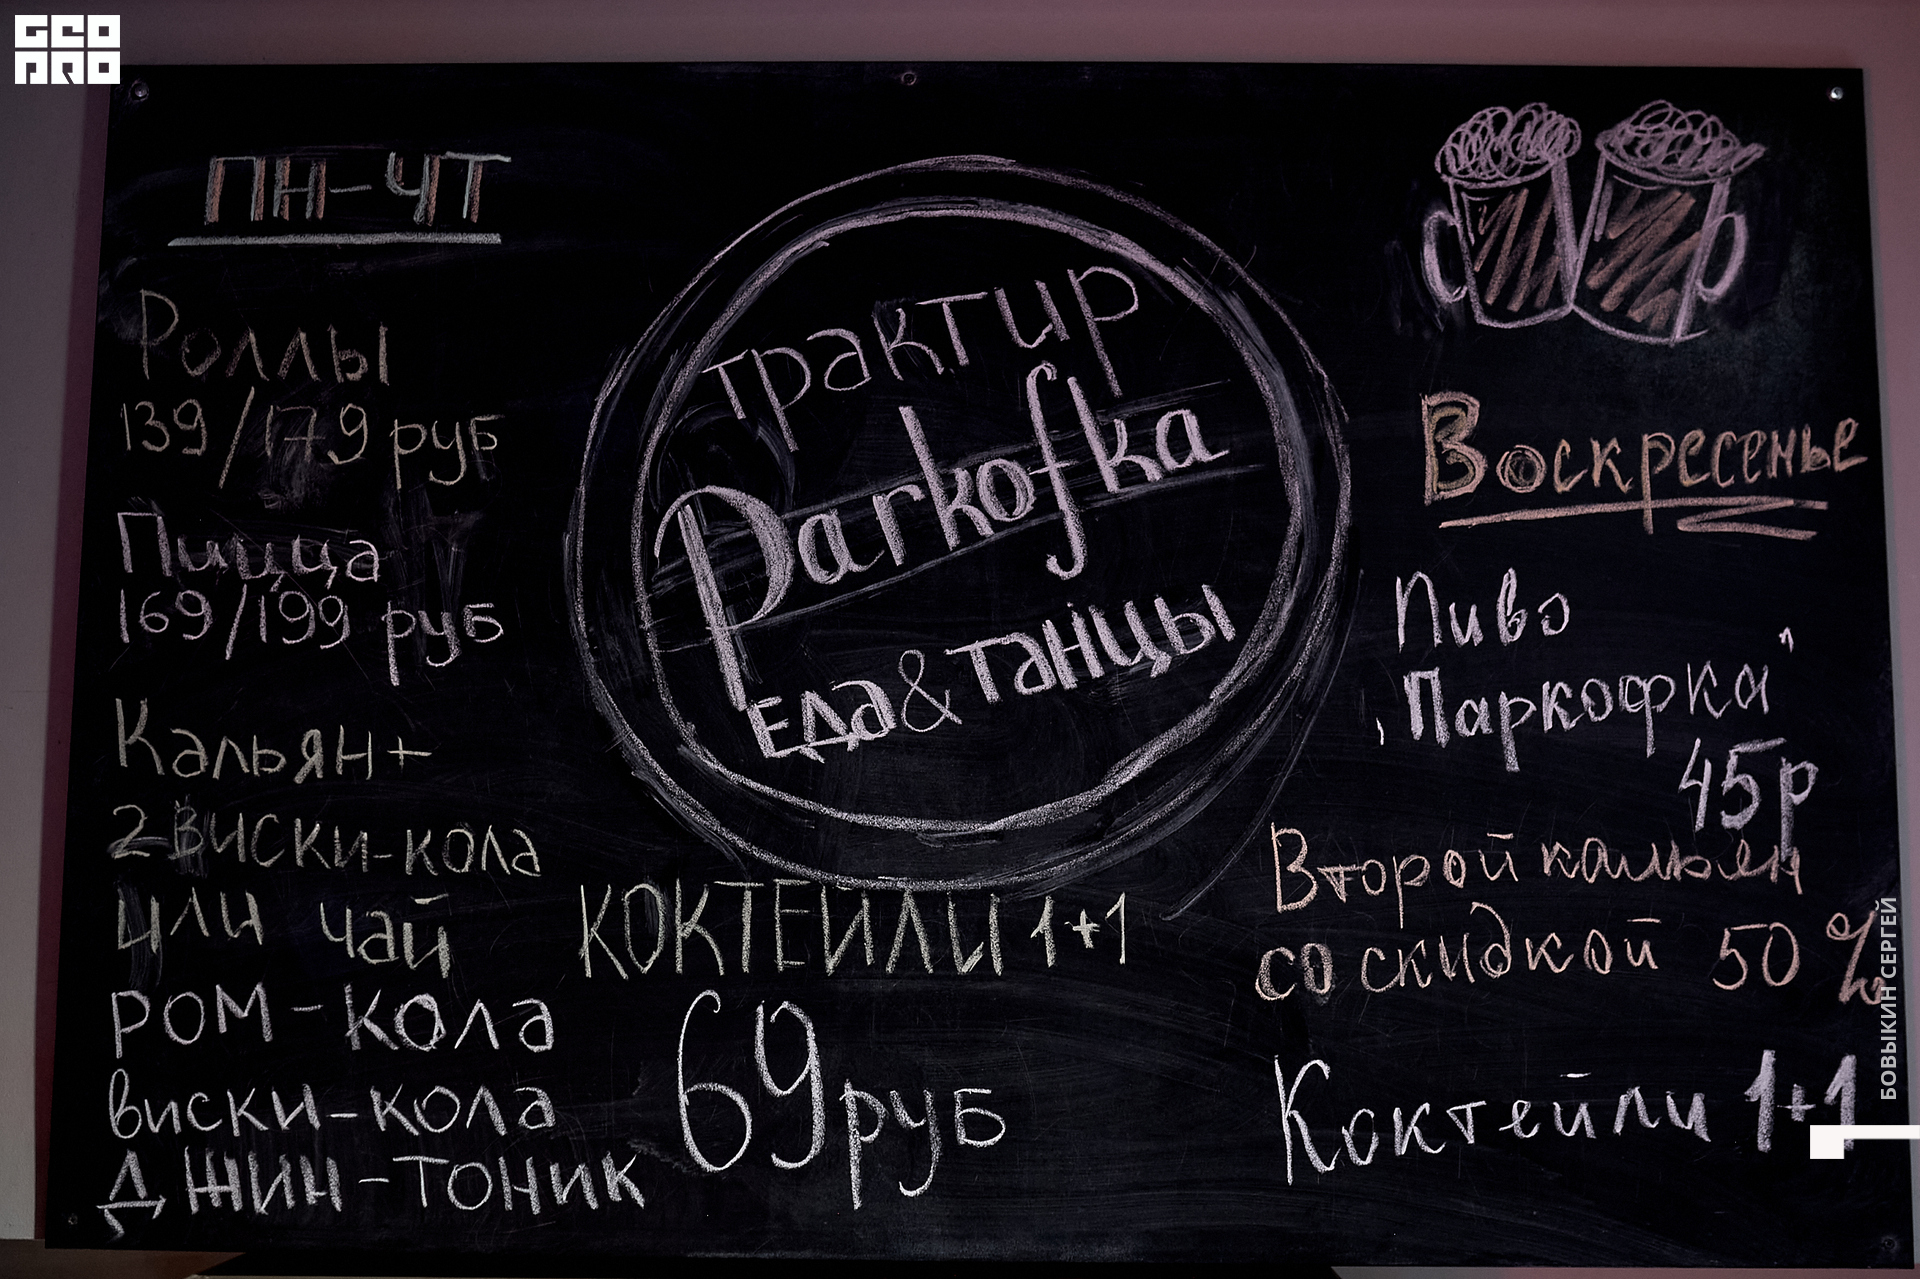 GEO
PRO
ПН-ЧТ
Роллы
139/179 руб
Пицца
169/199 руб
Кальян+
2 виски-кола
или чай
ром-кола
виски-кола
джин-тоник
трактир
Parkofka
Еда & танцы
КОКТЕЙЛИ 1+1
69 руб
Воскресенье
Пиво
"Паркофка"
45р
Второй кальян
со скидкой 50%
Коктейли 1+1
БОВЫКИН СЕРГЕЙ